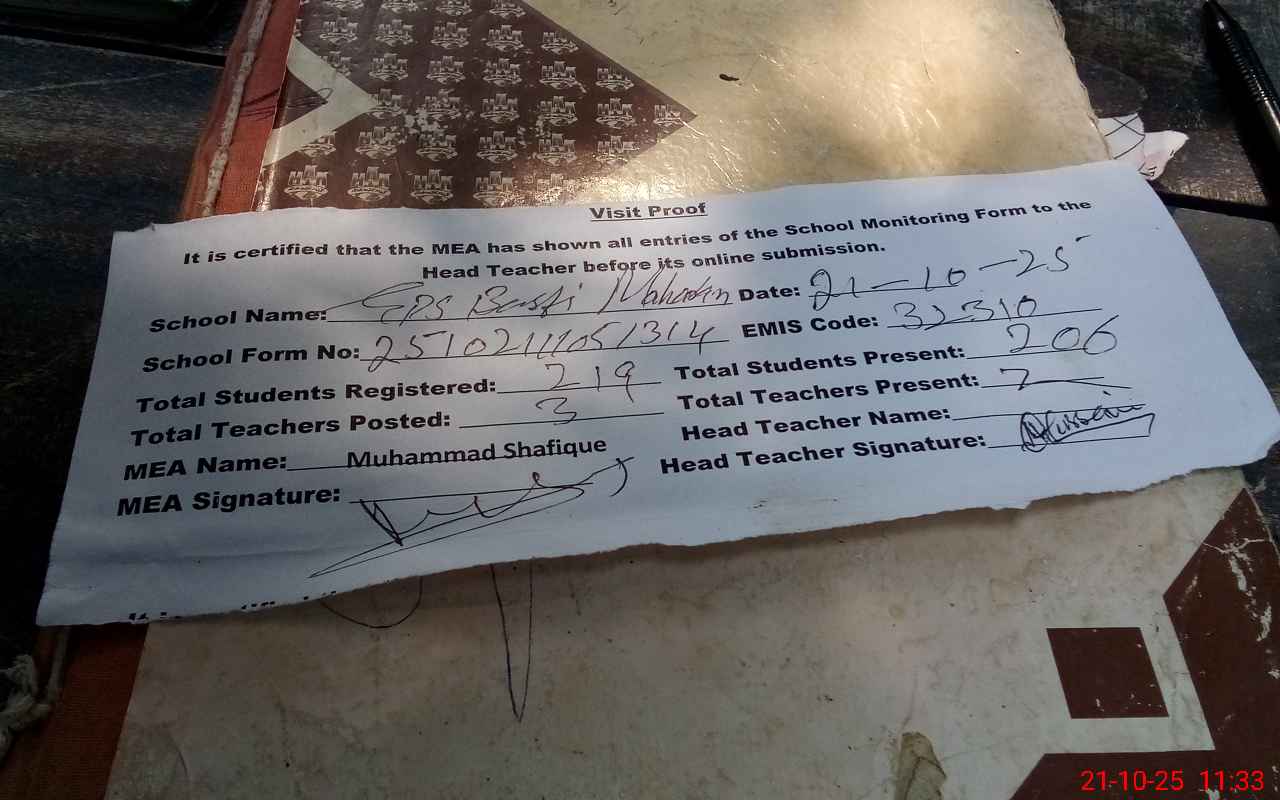 Visit Proof
It is certified that the MEA has shown all entries of the School Monitoring Form to the
Head Teacher before its online submission.
School Name: EPS Basti Date: 21-10-25
School Form No: EMIS Code: 32310
Total Students Registered: 219 Total Students Present: 206
Total Teachers Posted: 3 Total Teachers Present: 2
MEA Name: Muhammad Shafique Head Teacher Name:
MEA Signature: Head Teacher Signature: Hussain
21-10-25 11:33